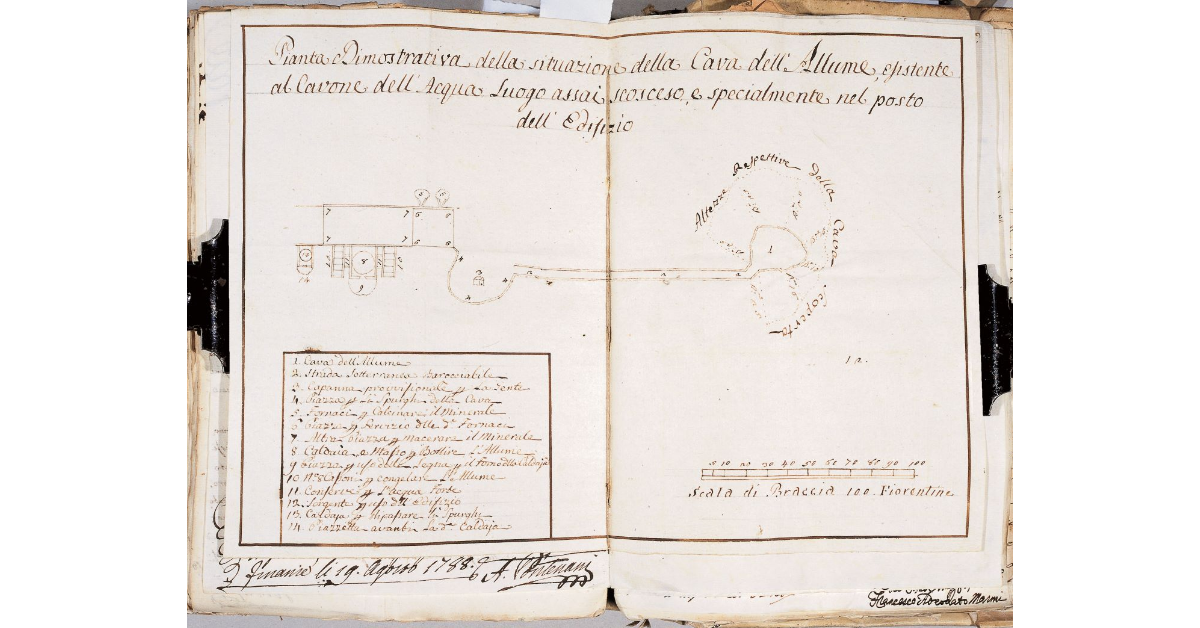 Pianta Dimostrativa della situazione della Cava dell'Allume, esistente
al Cavone dell'Acqua Luogo assai scosceso, e specialmente nel posto
dell'Edifizio
Altezze Respettive della Cava Scoperta
1
2
3
4
5
6
7
8
9
14
1 a.
1 Cava dell'Allume
2 Strada Sotterranea Barocciabile
3 Capanna provvisionale p La Gente
4 Piazza p Li Spurghi della Cava
5 Fornaci p Calcinare il Minerale
6 Piazza p Servizio dlle d.e Fornace
7 Altra Piazza p Macerare il Minerale
8 Caldaia, e Masso p Bollire L'Allume
9 Piazza p uso delle Legna p il Forno dlla Caldaja
10 N.8 Casson p congelare L'Allume
11 Conserve p L'acqua Forte
12 Sorgente p uso dll'Edifizio
13 Caldaja p Ripassare li Spurghi
14 Piazzetta avanti La d.a Caldaja
5 10 20 30 40 50 60 70 80 90 100
Scala di Braccia 100. Fiorentine
li 19. Agosto 1788.
Francesco Adeodato Marmi